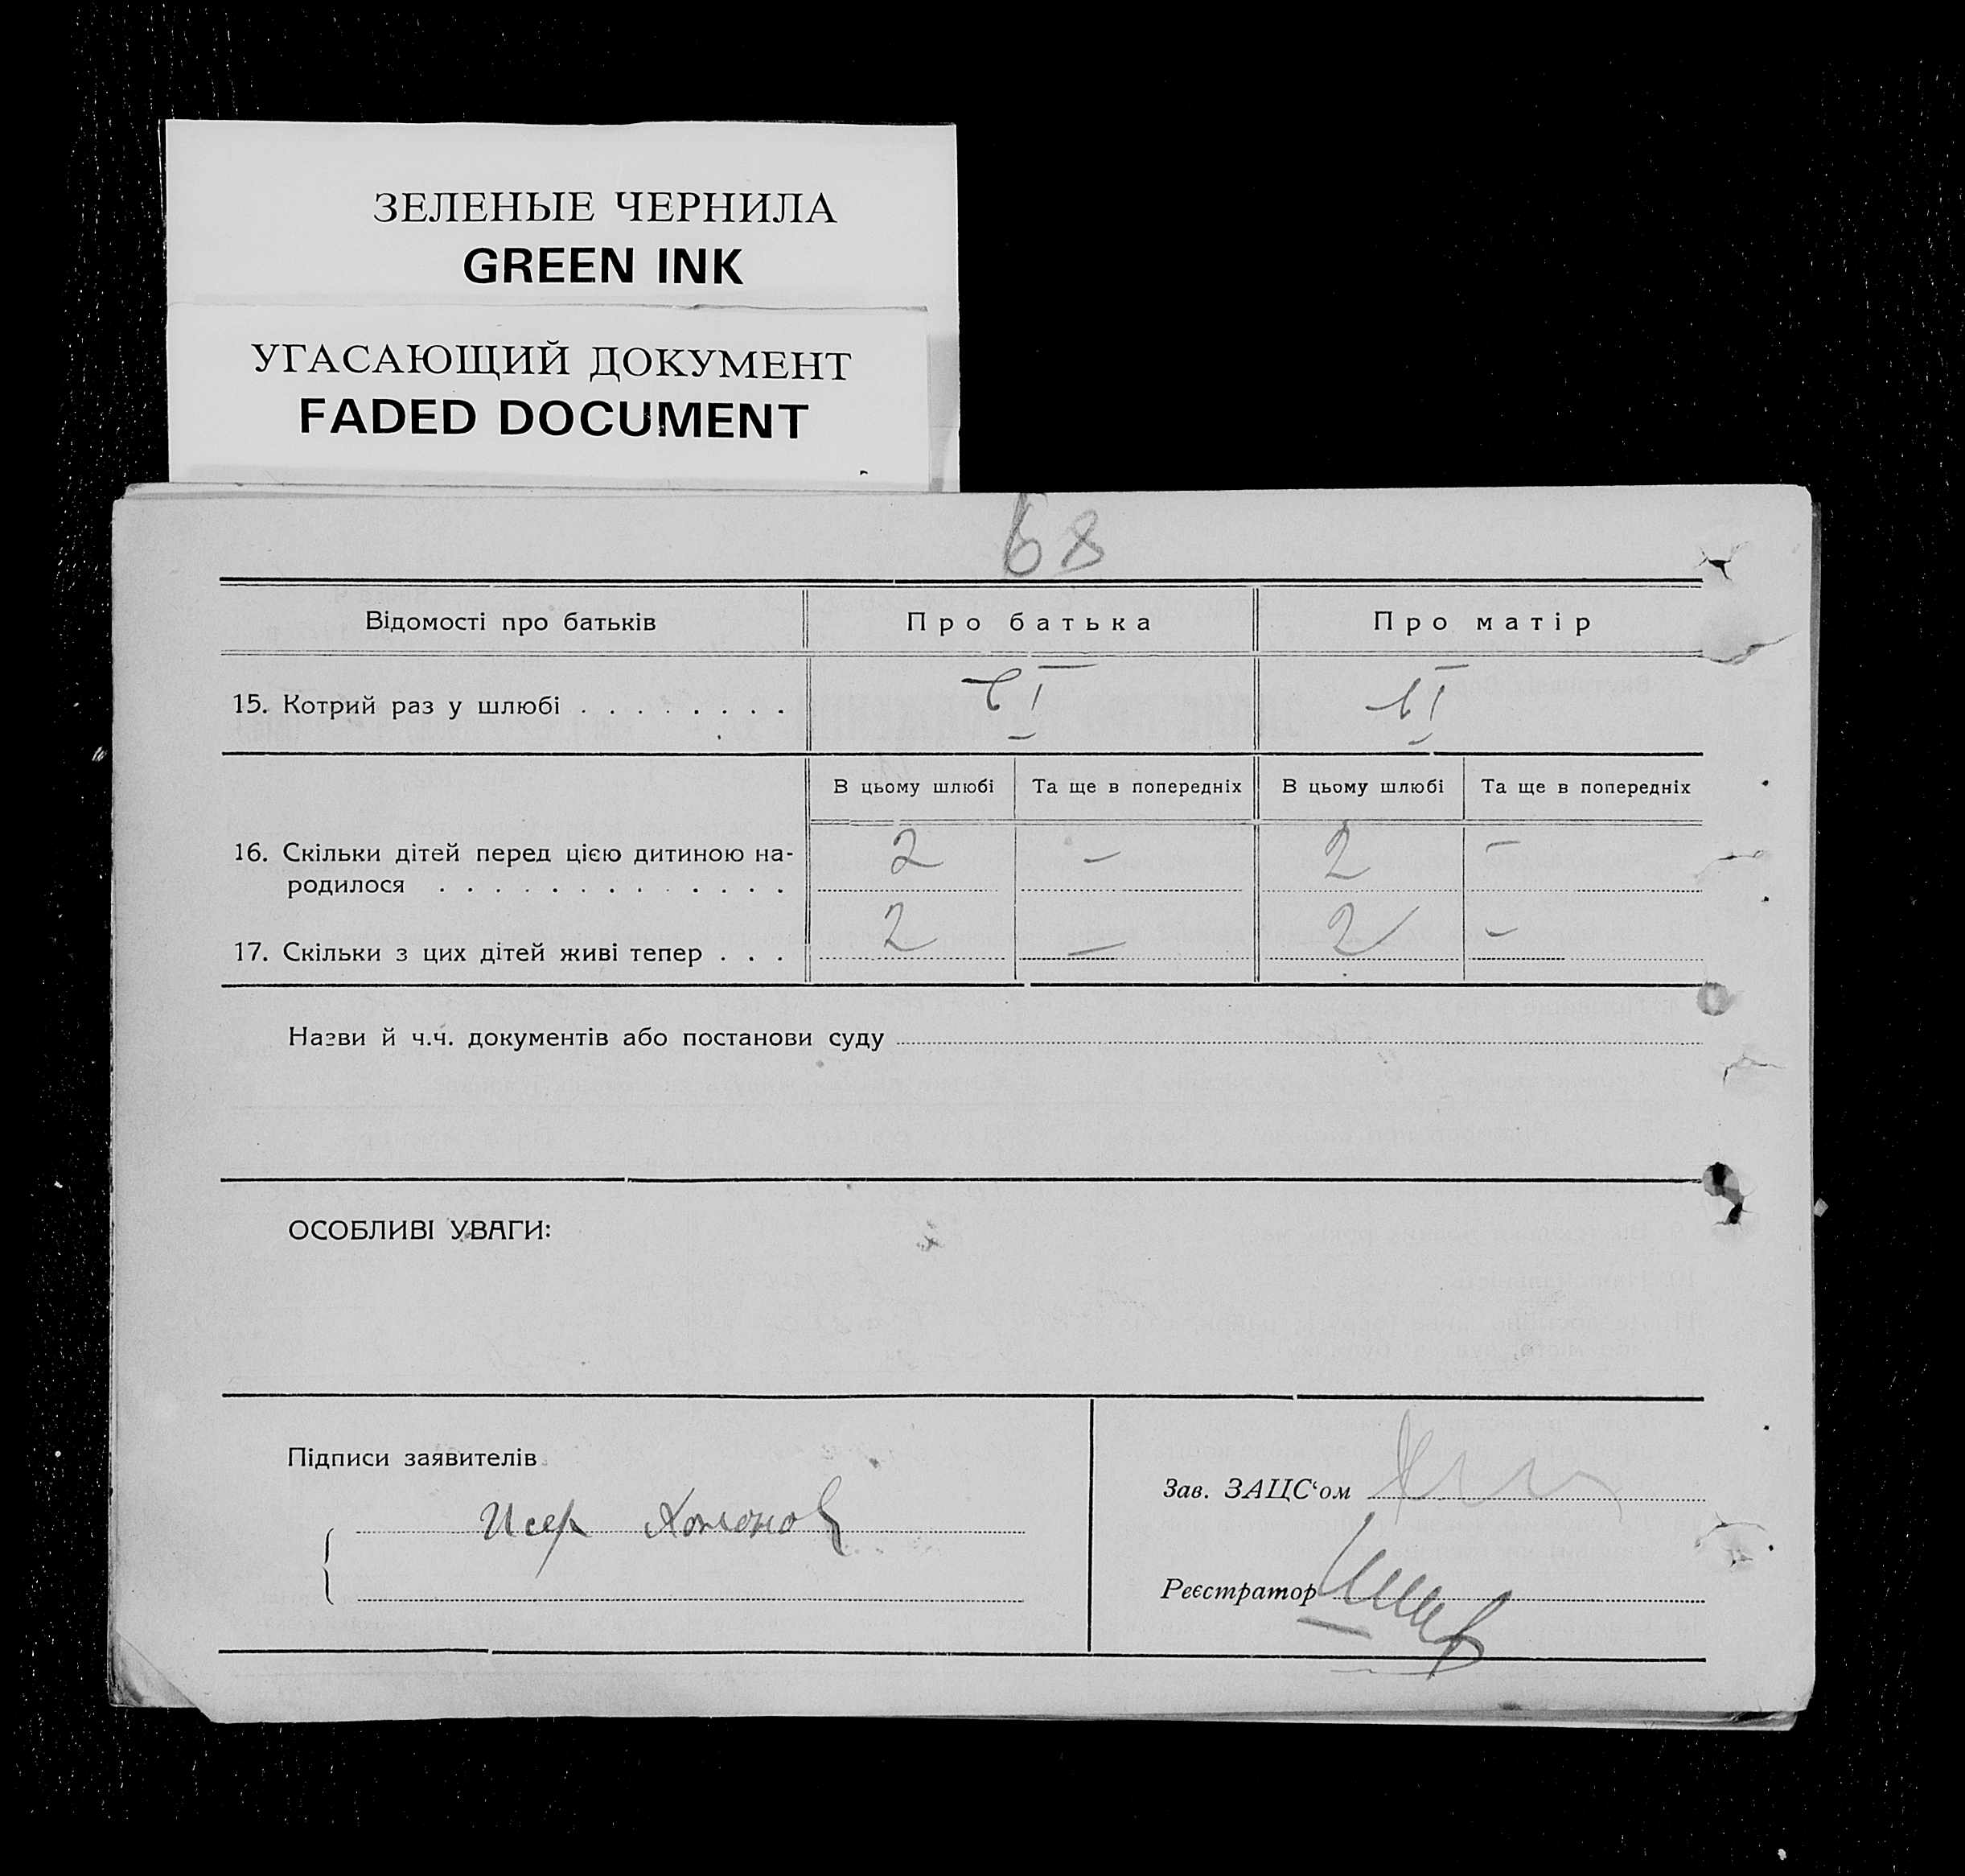 ЗЕЛЕНЫЕ ЧЕРНИЛА
GREEN INK
УГАСАЮЩИЙ ДОКУМЕНТ
FADED DOCUMENT
68
Відомості про батьків Про батька Про матір
15. Котрий раз у шлюбі . . . . . . . . І І
В цьому шлюбі Та ще в попередніх В цьому шлюбі Та ще в попередніх
16. Скільки дітей перед цією дитиною на- 2 – 2 –
родилося . . . . . . . . . . . . .
17. Скільки з цих дітей живі тепер . . . 2 – 2 –
Назви й ч.ч. документів або постанови суду
ОСОБЛИВІ УВАГИ:
Підписи заявителів
Зав. ЗАЦС‘ом
Реєстратор